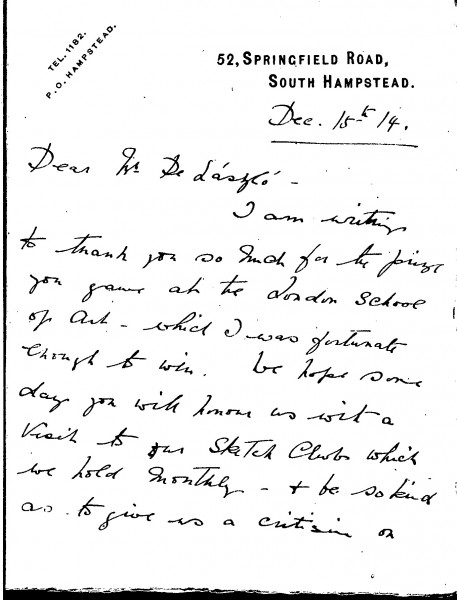 TEL. 1182.
P. O. HAMPSTEAD.
52, SPRINGFIELD ROAD,
SOUTH HAMPSTEAD.
Dec. 15th 14.
Dear Mr De László -
I am writing
to thank you so much for the prize
you gave at the London School
of Art - which I was fortunate
enough to win. We hope some
day you will honour us with a
visit to our Sketch Club which
we hold monthly - + be so kind
as to give us a criticism on